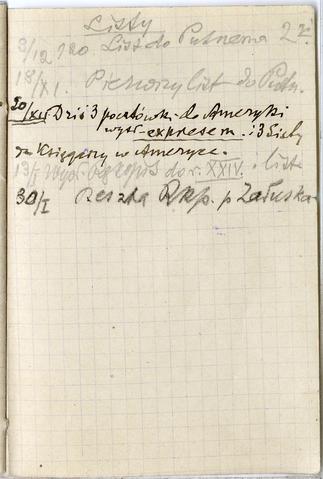 Listy
3/12 1920 List do Putnema
18/XI. Pierwszy list do Putn.
30/XII Dziś 3 pocztówki do Ameryki
wysł. expresem. i 3 listy
Księgarzy w Ameryce.
13/I Wysł. Rękopis do r. XXIV. i list
30/I Reszta Rkp. p Załuska